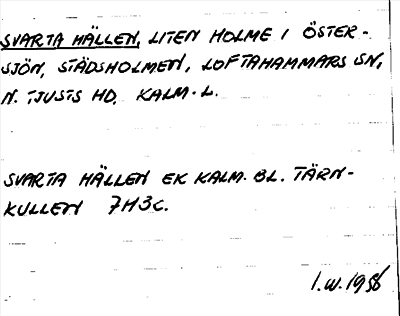 SVARTA HÄLLEN, LITEN HOLME I ÖSTER-
SJÖN, STÄDSHOLMEN, LOFTAHAMMARS SN,
N. TJUSTS HD, KALM. L.
SVARTA HÄLLEN EK KALM. BL. TÄRN-
KULLEN 7H3c.
I.W. 1956